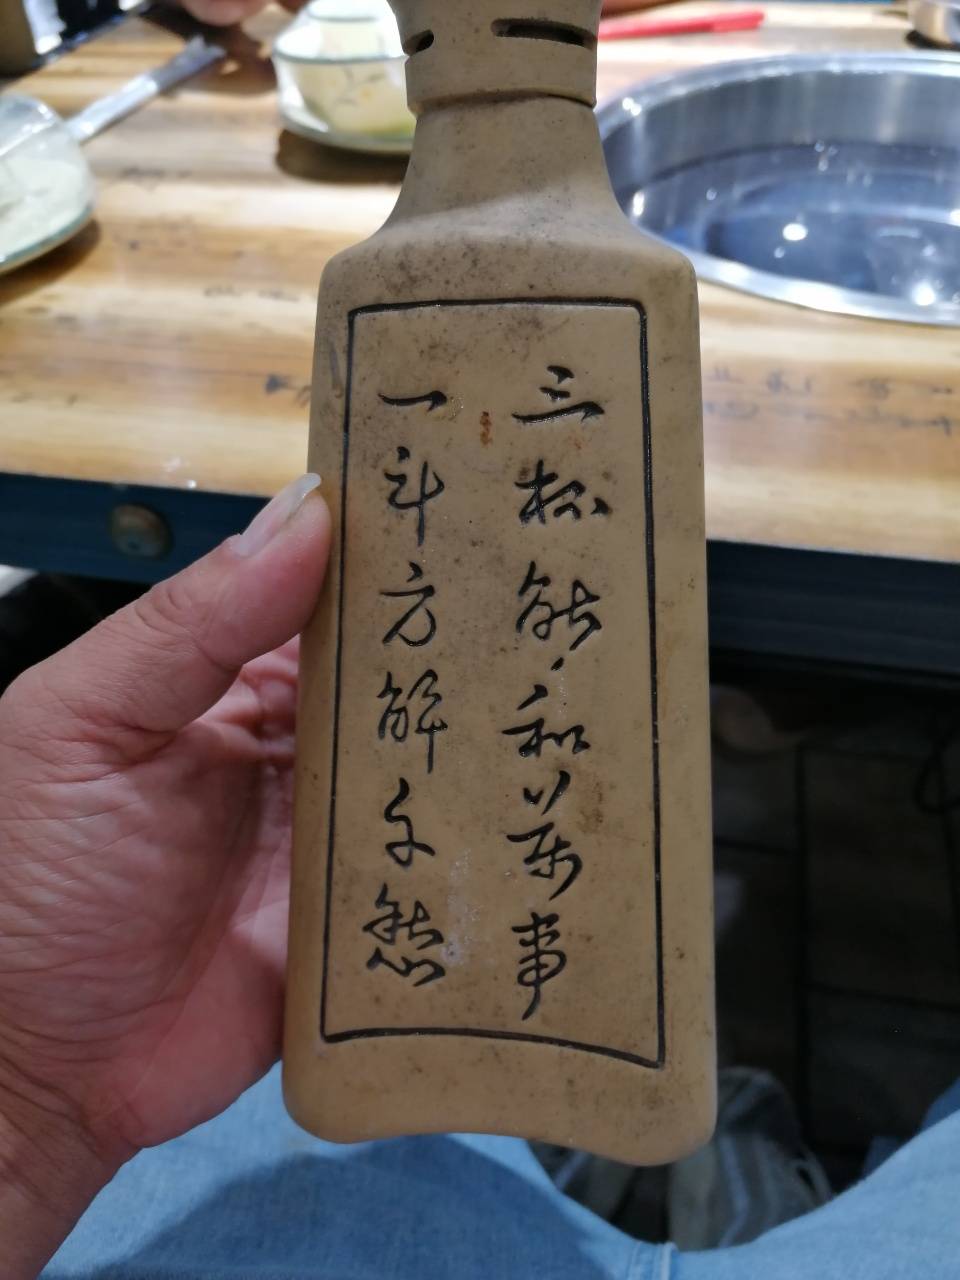 三杯能和萬事
一斗方解千愁